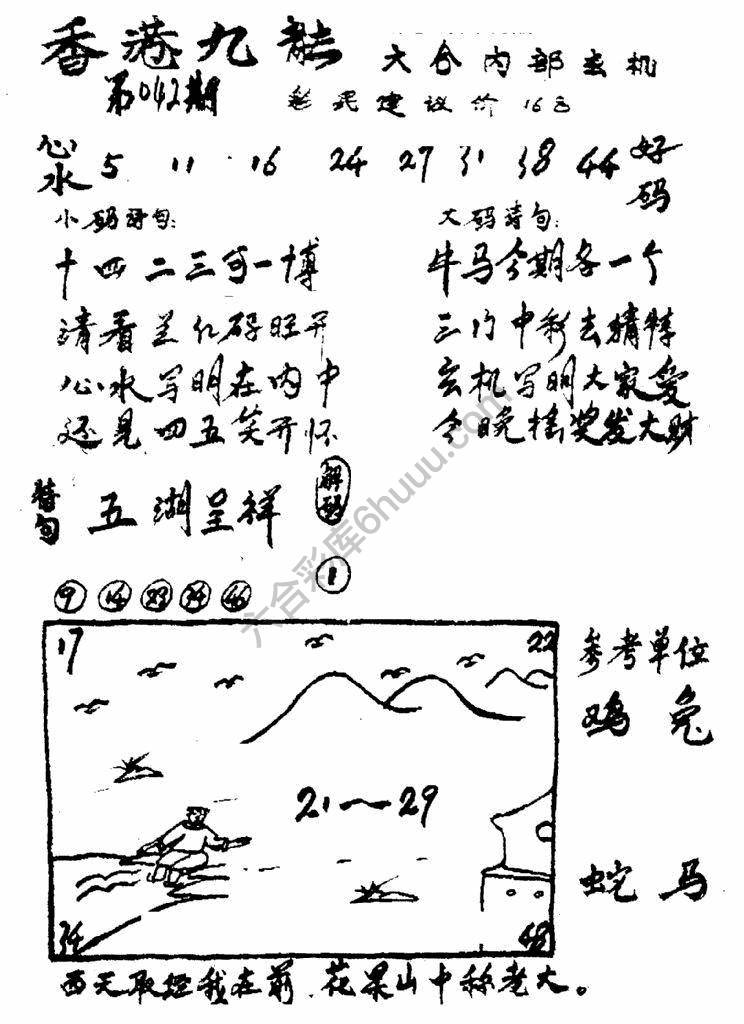 香港九龙
六合内部玄机
第042期
彩民建议价16文
心水 5 11 16 24 27 31 38 44 好码
小码诗句:
十四二三可一博
请看羊仪码旺开
心水写明在内中
还是四五笑开怀
大码诗句:
牛马今期各一个
三门中彩去精特
玄机写明大家爱
今晚摇奖发大财
特句 五湖呈祥
解码
1
9 14 23 34 46
17 22
21~29
34 48
参考单位
鸡 兔
蛇 马
西天取经我在前.花果山中称老大。
六合彩库6huuu.com